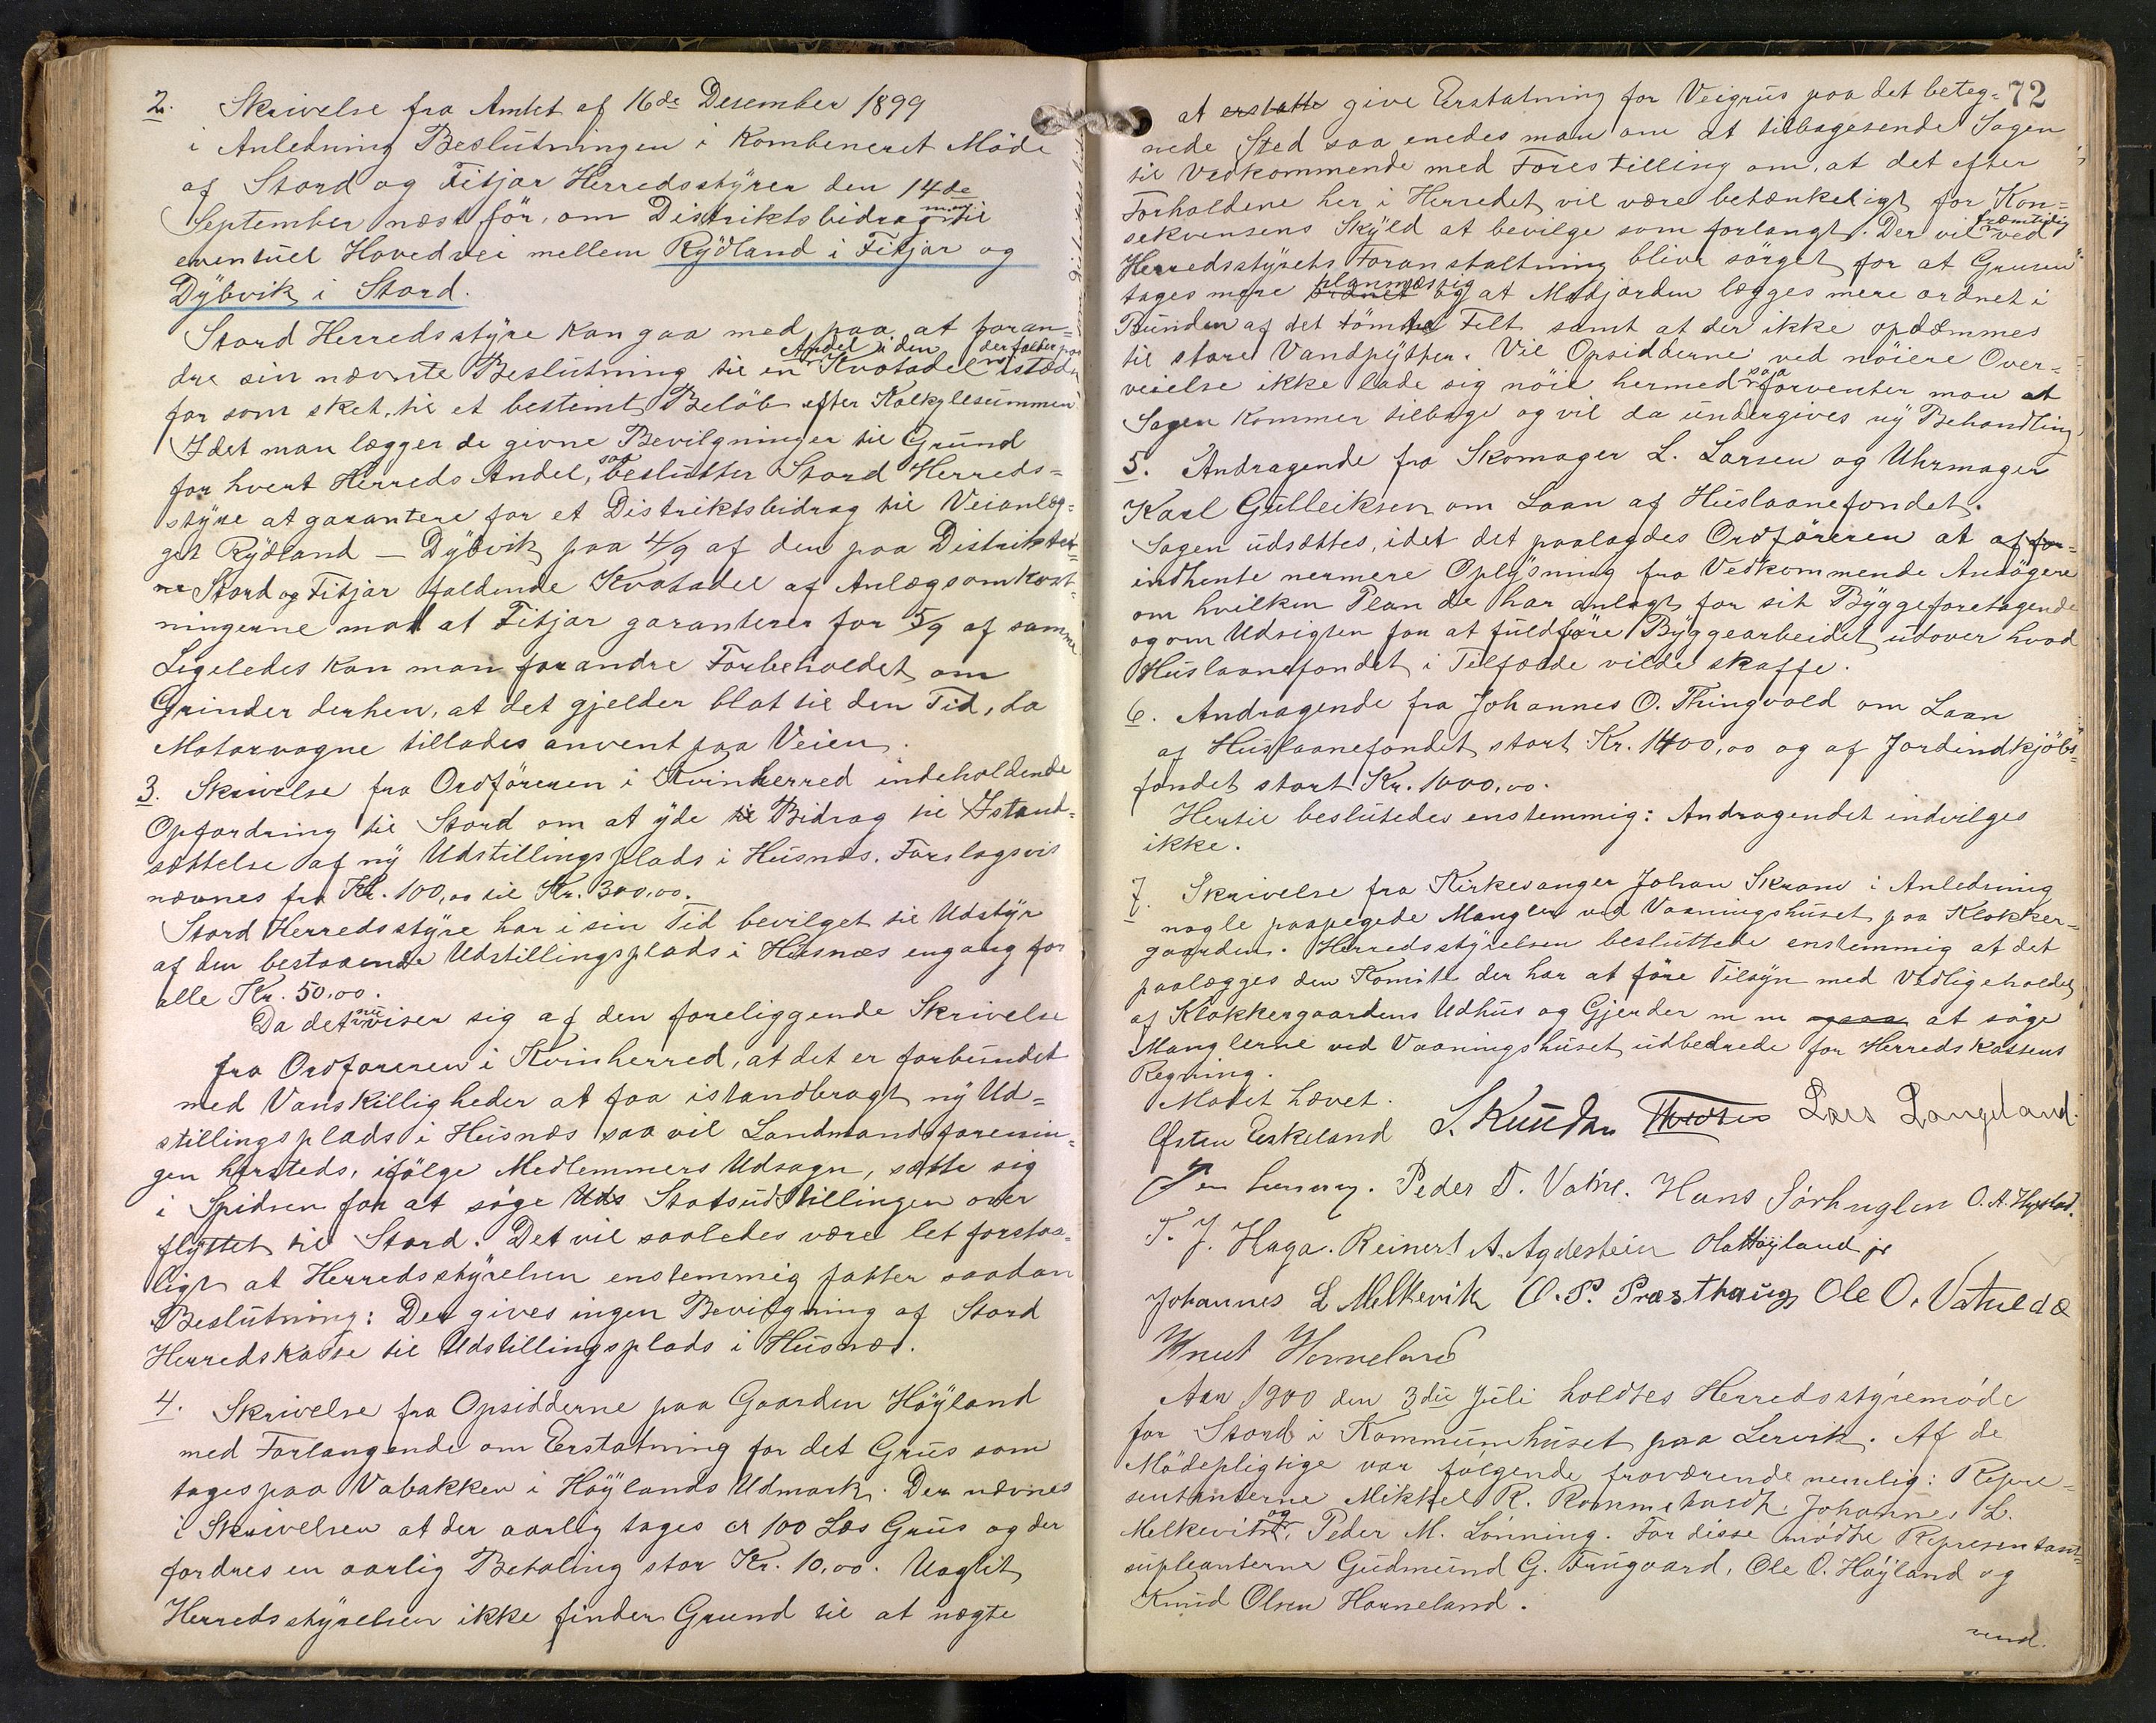 2. Skrivelse fra Amtet af 16de Desember 1899
i Anledning Beslutningen i Kombeneret Möde
af Stord og Fitjar Herredsstyrer den 14de
September næst för, om Distriktsbidrag m.m. til
eventuel Hovedvei mellem Rydland i Fitjar og
Dybvik i Stord.
Stord Herredsstyre kan gaa med paa at foran=
dre sin nævnte Beslutning til en Andel i den Kvotadel der falder paa istæden
for som sket, til et bestemt Belöb efter Kalkylesummen.
Idet man lægger de givne Bevilgninger til Grund
for hvert Herreds Andel, saa beslutter Stord Herreds=
styre at garantere for et Distriktsbidrag til Veianlæg=
get Rydland — Dybvik paa 4/9 af den paa Distrikter=
ne Stord og Fitjar faldende Kvotadel af Anlægsomkost=
ningerne mod at Fitjar garanterer for 5/9 af samme
Ligeledes kan man forandre Forbeholdet om
Grinder derhen, at det gjelder blot til den Tid, da
Motorvogne tillades anvent paa Veien.
3. Skrivelse fra Ordföreren i Kvinherred indeholdende
Opfordring til Stord om at yde til Bidrag til Istand=
sættelse af ny Udstillingsplads i Husnæs. Forslagsvis
nævnes fra Kr. 100,00 til Kr. 300,00.
Stord Herredsstyre har i sin Tid bevilget til Udstyr
af den bestaaende Udstillingsplads i Husnæs engang for
alle Kr. 50,00.
Da det nu viser sig af den foreliggende Skrivelse
fra Ordføreren i Kvinherred, at det er forbundet
med Vanskilligheder at faa istandbragt ny Ud=
stillingsplads i Husnæs saa vil Landmandsforenin=
gen hersteds, ifölge Medlemmers Udsagn, sætte sig
i Spidsen for at söge Uds Statsudstillingen over
flyttet til Stord. Det vil saaledes være let forstaa=
ligt at Herredsstyrelsen enstemmig fatter saadan
Beslutning: Der gives ingen Bevilgning af Stord
Herredskasse til Udstillingsplads i Husnæs.
4. Skrivelse fra Opsidderne paa Gaarden Höyland
med Forlangende om Erstatning for det Grus som
tages paa Vabakken i Höylands Udmark. Der nævnes
i Skrivelsen at der aarlig tages ca 100 Læs Grus og der
fordres en aarlig Betaling stor Kr. 10,00. Uagtet
Herredsstyrelsen ikke finder Grund til at nægte
72
at erstatte give Erstatning for Veigrus paa det beteg=
nede Sted saa enedes man om at tilbagesende Sagen
til Vedkommende med Forestilling om, at det efter
Forholdene her i Herredet vil være betænkeligt for Kon=
sekvensens Skyld at bevilge som forlangt. Der vil fræmtidig ved
Herredsstyrets Foranstaltning blive sörget for at Grusen
tages mere ordnet planmæssig og at Madjorden lægges mere ordnet i
Bunden af det tömte Felt samt at der ikke opdæmmes
til store Vandpytter. Vil Opsidderne ved nöiere Over=
veielse ikke lade sig nöie hermed saa forventer man at
Sagen kommer tilbage og vil da undergives ny Behandling.
5. Andragende fra Skomager L. Larsen og Uhrmager
Karl Gulleiksen om Laan af Huslaanefondet.
Sagen udsættes, idet det paalagdes Ordföreren at af for=
indhente nermere Oplysning fra Vedkommende Ansögere
om hvilken Plan de har anlagt for sit Byggeforetagende
og om Udsigten for at fuldföre Byggearbeidet udover hvad
Huslaanefondet i Tilfælde vilde skaffe.
6. Andragende fra Johannes O. Thingvold om Laan
af Huslaanefondet stort Kr. 1400,00 og af Jordindkjöbs=
fondet stort Kr. 1000,00.
Hertil beslutedes enstemmig: Andragendet indvilges
ikke.
7. Skrivelse fra Kirkesanger Johan Skram i Anledning
nogle paapegede Mangler ved Vaaningshuset paa Klokker=
gaarden. Herredsstyrelsen besluttede enstemmig at det
paalægges den Komite der har at före Tilsyn med Vedligeholdet
af Klokkergaardens Udhus og Gjerder m m ogsaa at söge
Manglerne ved Vaaningshuset udbedrede for Herredskassens
Regning.
Mödet hævet.
Østen Eskeland S. Kundsen Lars Langeland.
Peder T. Vatne. Hans Sörhuglen O. A. Hystad.
T. J. Haga. Reinert A. Agdestein Ola Höyland jr
Johannes L Melkevik O. P. Præsthaug Ole O. Vatnedæ
Knut Horneland
Aar 1900 den 3die Juli holdtes Herredsstyremöde
for Stord i Kommunehuset paa Lervik. Af de
Mödepligtige var fölgende fraværende nemlig: Repre=
sentanterne Mikkel R. Rommetvedt, Johannes L.
Melkevik og Peder M. Lönning. For disse mödte Representant=
supleanterne Gudmund G. Frugaard, Ole O. Höyland og
Knud Olsen Horneland.
vend.